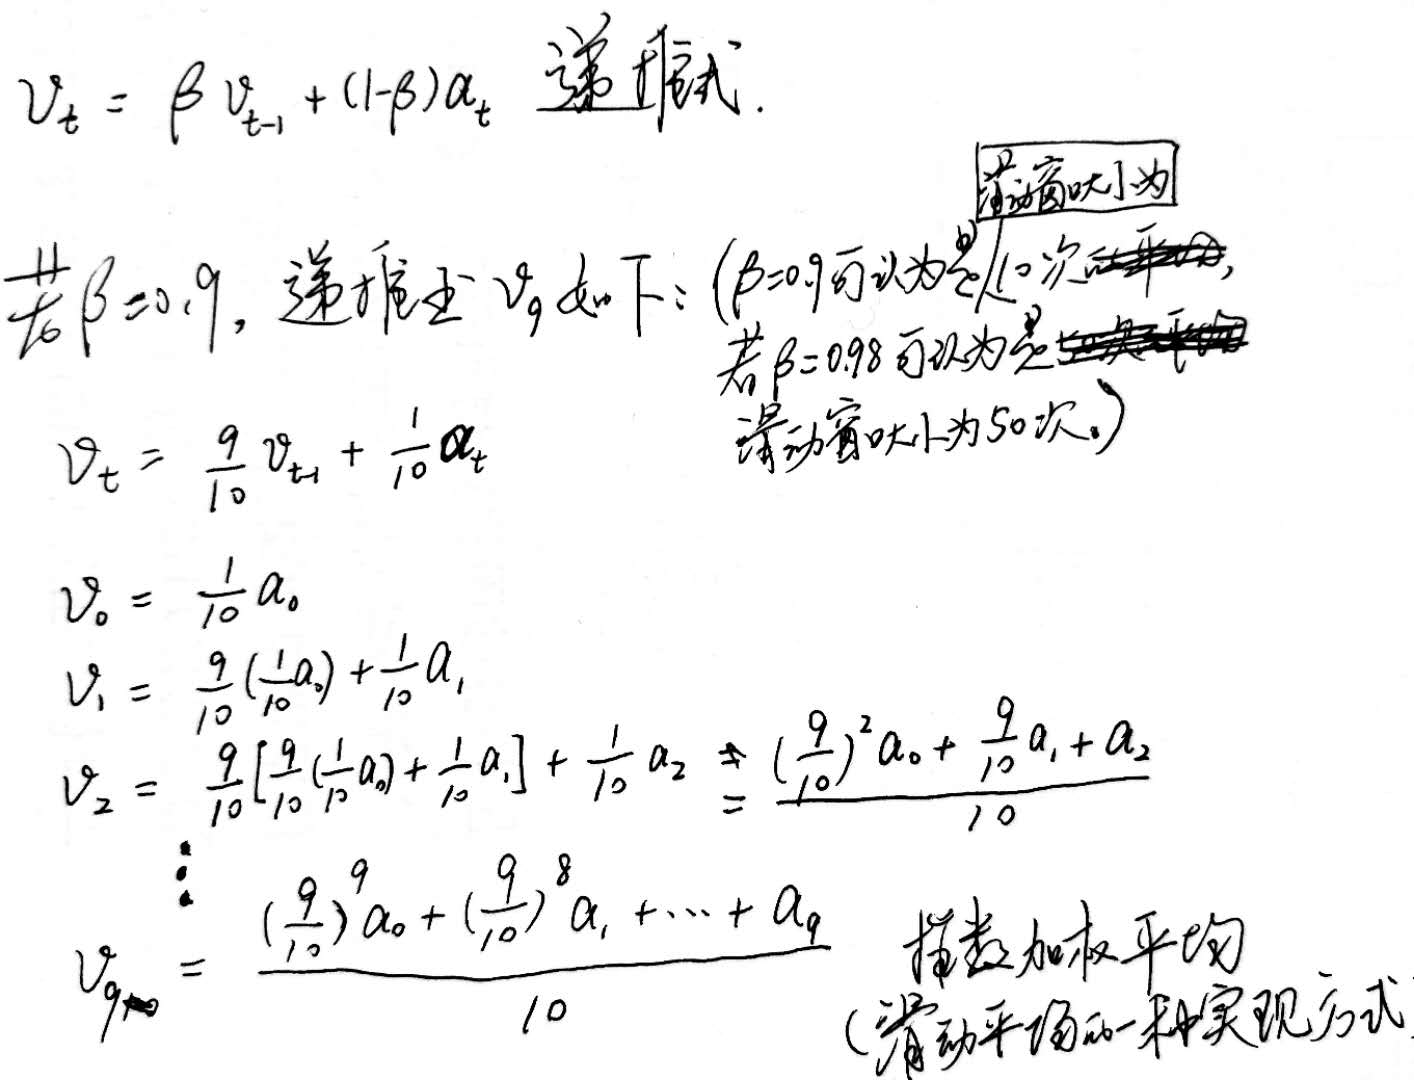 v_t = β v_{t-1} + (1-β)a_t 递推式.
滑动窗口大小为
若β=0.9, 递推至 v_9 如下: (β=0.9可认为是10次
若β=0.98可认为是
滑动窗口大小为50次。)
v_t = 9/10 v_{t-1} + 1/10 a_t
v_0 = 1/10 a_0
v_1 = 9/10 (1/10 a_0) + 1/10 a_1
v_2 = 9/10 [9/10 (1/10 a_0) + 1/10 a_1] + 1/10 a_2 = ((9/10)^2 a_0 + 9/10 a_1 + a_2)/10
⋮
v_9 = ((9/10)^9 a_0 + (9/10)^8 a_1 + ... + a_9)/10
指数加权平均
(滑动平均的一种实现方式